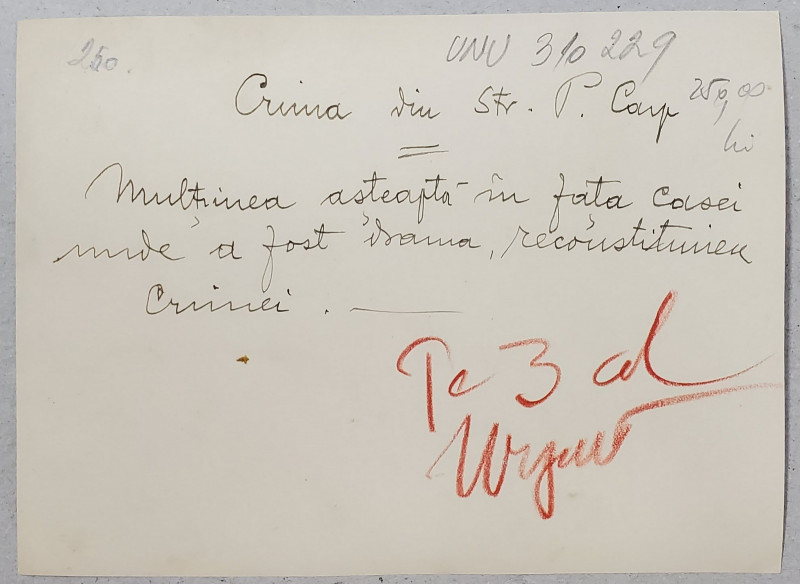 250.
UNU 310229
Crima din Str. P. Carp
250,00 lei
Mulțimea așteaptă în fața casei
unde a fost drama, reconstituirea
Crimei.
Pe 3 col
Urgent